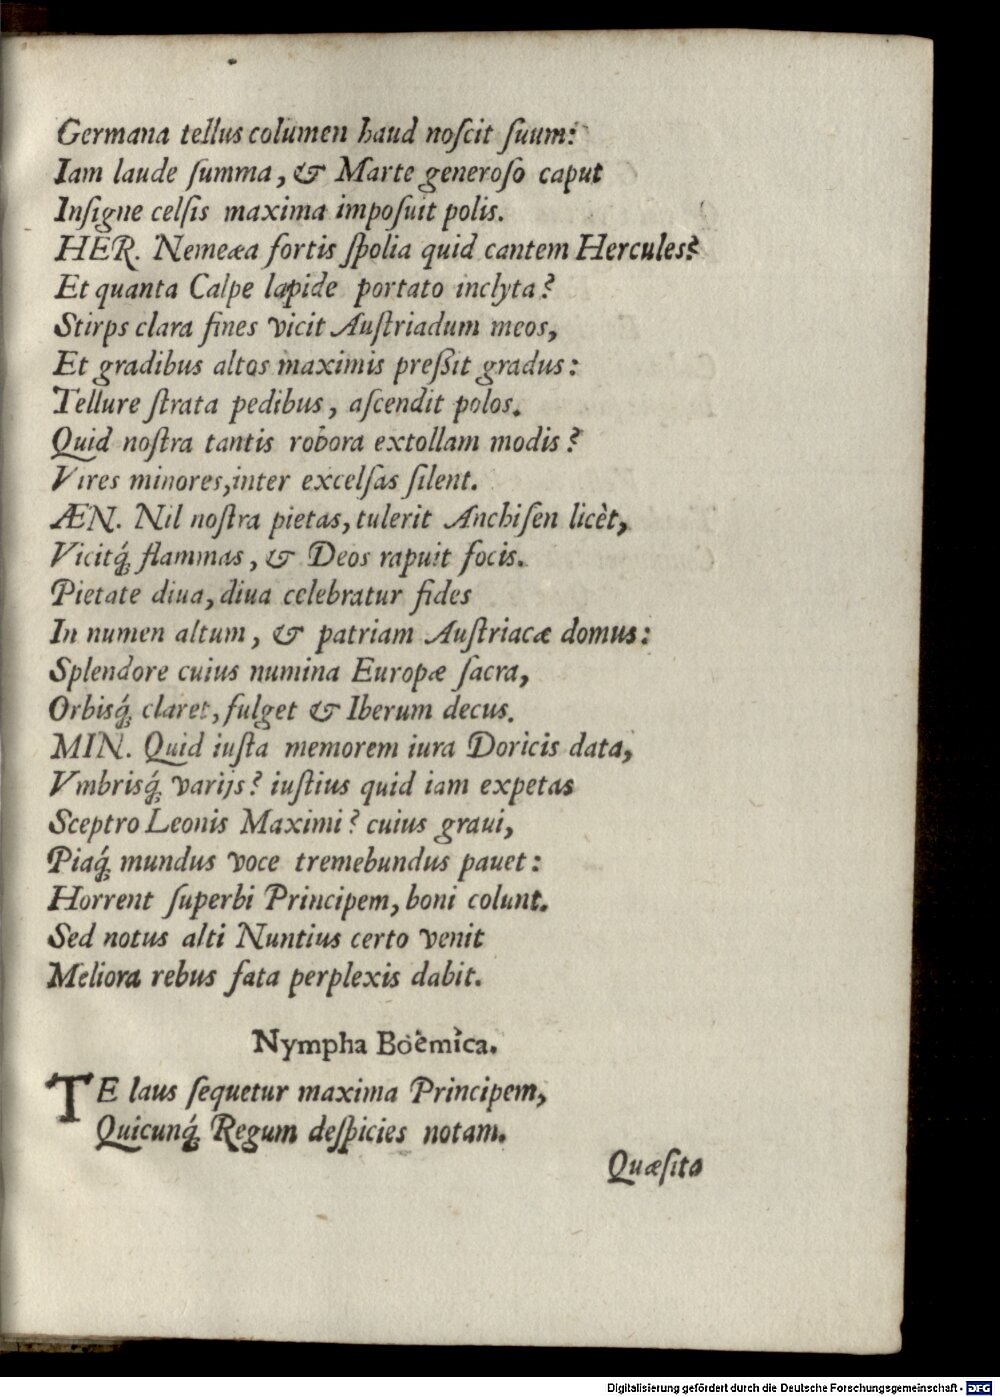 Germana tellus columen haud noſcit ſuum:
Iam laude ſumma, & Marte generoſo caput
Inſigne celſis maxima impoſuit polis.
HER. Nemeæa fortis ſpolia quid cantem Hercules?
Et quanta Calpe lapide portato inclyta?
Stirps clara fines vicit Auſtriadum meos,
Et gradibus altos maximis preſsit gradus:
Tellure ſtrata pedibus, aſcendit polos.
Quid noſtra tantis robora extollam modis?
Vires minores, inter excelſas ſilent.
ÆN. Nil noſtra pietas, tulerit Anchiſen licèt,
Vicitq́; flammas, & Deos rapuit focis.
Pietate diua, diua celebratur fides
In numen altum, & patriam Auſtriacæ domus:
Splendore cuius numina Europæ ſacra,
Orbisq́; claret, fulget & Iberum decus.
MIN. Quid iuſta memorem iura Doricis data,
Vmbrisq́; varijs? iuſtius quid iam expetas
Sceptro Leonis Maximi? cuius graui,
Piaq́; mundus voce tremebundus pauet:
Horrent ſuperbi Principem, boni colunt.
Sed notus alti Nuntius certo venit
Meliora rebus fata perplexis dabit.
Nympha Boëmica.
TE laus ſequetur maxima Principem,
Quicunq́; Regum deſpicies notam.
Quæſita
Digitalisierung gefördert durch die Deutsche Forschungsgemeinschaft - DFG